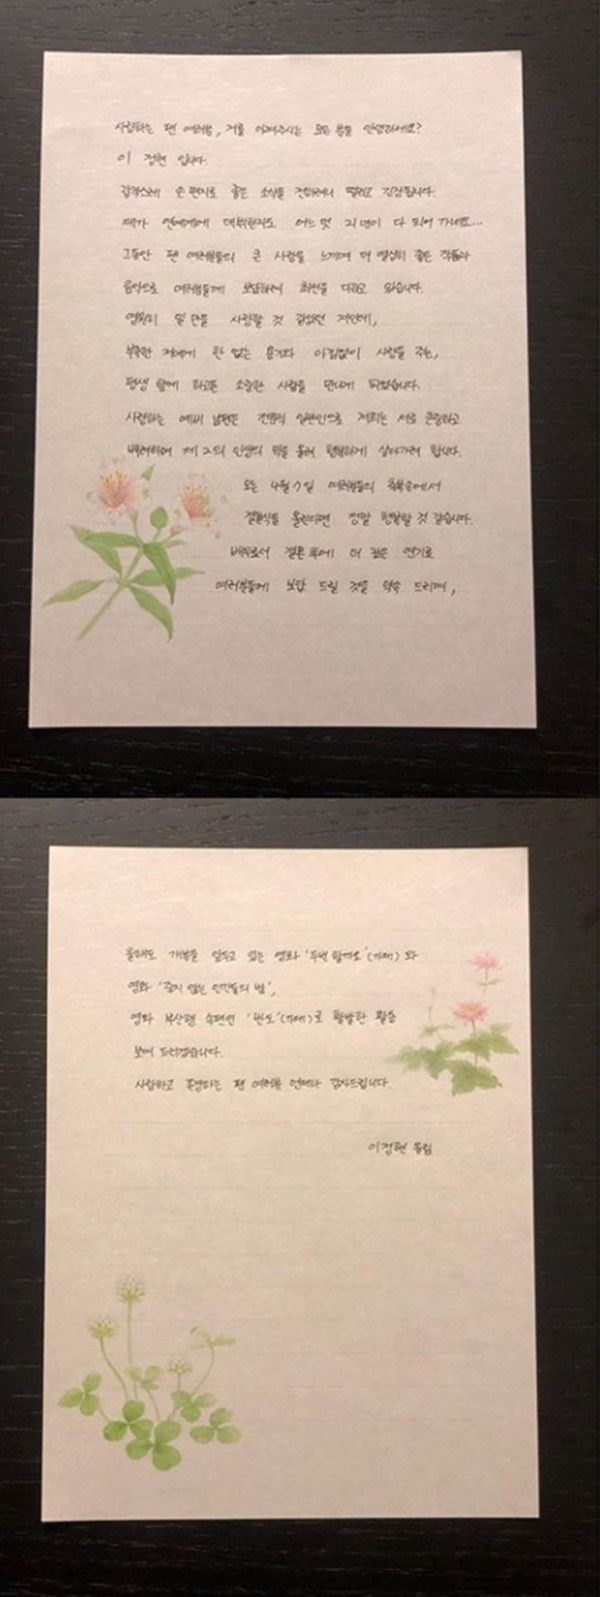 사랑하는 팬 여러분, 저를 아껴주시는 모든 분들 안녕하세요?
이 정현 입니다.
갑작스레 손편지로 좋은 소식을 전하려니 떨리고 긴장됩니다.
제가 연예계에 데뷔한지도 어느 덧 21년이 다 되어 가네요...
그동안 팬 여러분들의 큰 사랑을 느끼며 더 열심히 좋은 작품과
음악으로 여러분들께 보답하려 최선을 다하고 있습니다.
영원히 일 만을 사랑할 것 같았던 저인데,
부족한 저에게 한 없는 용기와 아낌없이 사랑을 주는,
평생 함께 하고픈 소중한 사람을 만나게 되었습니다.
사랑하는 예비 남편은 전문직 일반인으로 저희는 서로 존중하고
배려하며 제 2의 인생의 막을 올려 행복하게 살아가려 합니다.
오는 4월 7일 여러분들의 축복속에서
결혼식을 올린다면 정말 행복할 것 같습니다.
배우로서 결혼 후에 더 깊은 연기로
여러분들께 보답 드릴 것을 약속 드리며,
올해도 개봉을 앞두고 있는 영화 '두번할까요' (가제) 와
영화 '죽지 않는 인간들의 밤',
영화 부산행 속편인 '반도' (가제)로 활발한 활동
보여 드리겠습니다.
사랑하고 존경하는 팬 여러분 언제나 감사드립니다.
이정현 올림